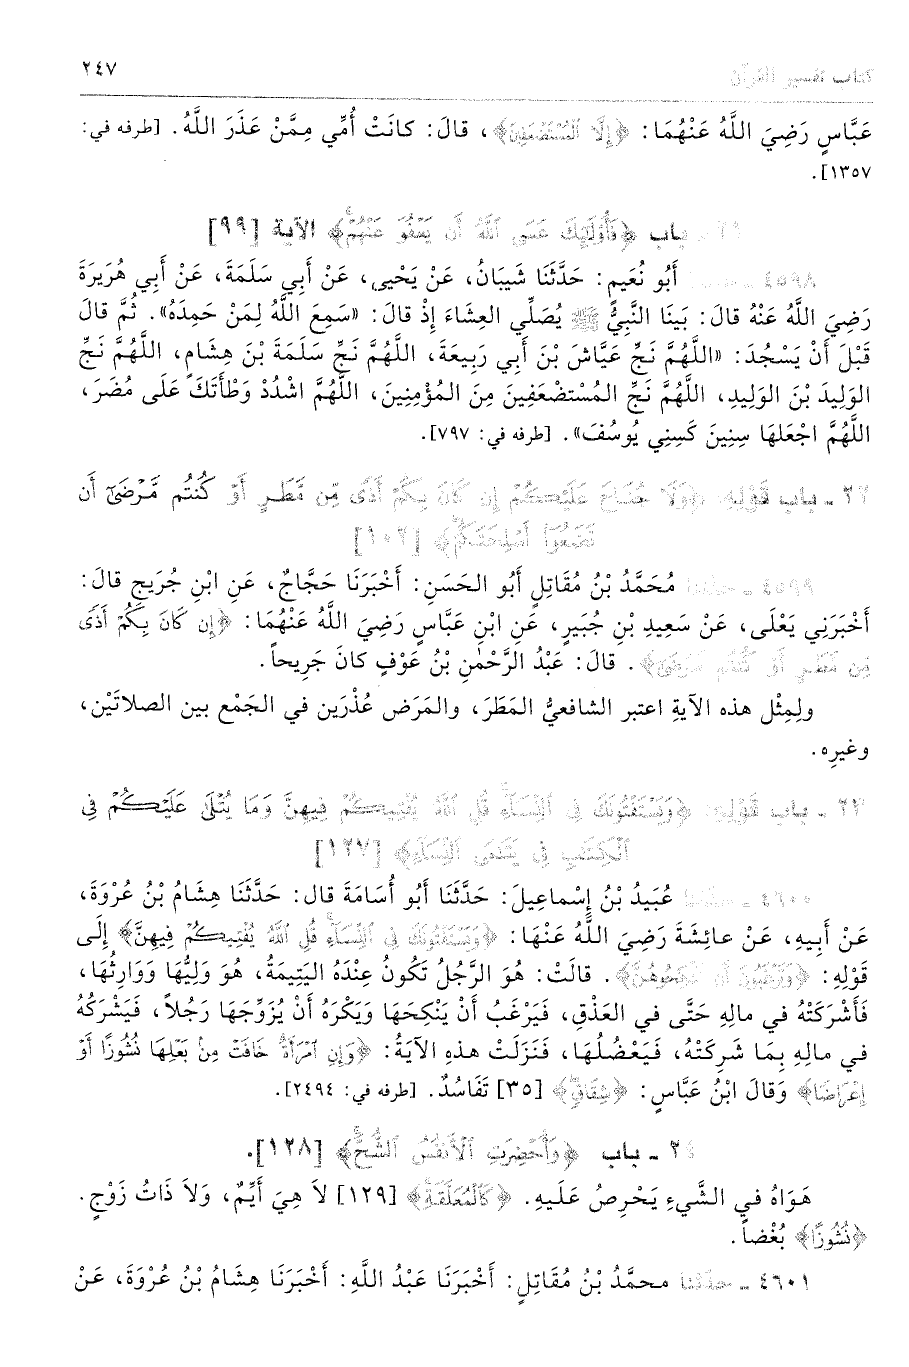 كتاب تفسير القرآن
٢٤٧
عَبَّاسٍ رَضِيَ اللَّهُ عَنْهُمَا: ﴿إِلَّا ٱلْمُسْتَضْعَفِينَ﴾، قالَ: كانَتْ أُمِّي مِمَّنْ عَذَرَ اللَّهُ. [طرفه في:
١٣٥٧].
باب ﴿فَأُوْلَٰٓئِكَ عَسَى ٱللَّهُ أَن يَعْفُوَ عَنْهُمْ﴾ الآية [٩٩]
٤٥٩٨ ـ حدّثنا أَبُو نُعَيمٍ: حَدَّثَنَا شَيبَانُ، عَنْ يَحْيى، عَنْ أَبِي سَلَمَةَ، عَنْ أَبِي هُرَيرَةَ
رَضِيَ اللَّهُ عَنْهُ قالَ: بَينَا النَّبِيُّ ﷺ يُصَلِّي العِشَاءَ إِذْ قالَ: «سَمِعَ اللَّهُ لِمَنْ حَمِدَهُ». ثُمَّ قالَ
قَبْلَ أَنْ يَسْجُدَ: «اللَّهُمَّ نَجِّ عَيَّاشَ بْنَ أَبِي رَبِيعَةَ، اللَّهُمَّ نَجِّ سَلَمَةَ بْنَ هِشَامٍ، اللَّهُمَّ نَجِّ
الوَلِيدَ بْنَ الوَلِيدِ، اللَّهُمَّ نَجِّ المُسْتضْعَفِينَ مِنَ المُؤْمِنِينَ، اللَّهُمَّ اشْدُدْ وَطْأَتَكَ عَلَى مُضَرَ،
اللَّهُمَّ اجْعَلهَا سِنِينَ كَسِنِي يُوسُفَ». [طرفه في: ٧٩٧].
٢٢ ـ باب قَوْلِهِ: ﴿وَلَا جُنَاحَ عَلَيْكُمْ إِن كَانَ بِكُمْ أَذًى مِّن مَّطَرٍ أَوْ كُنتُم مَّرْضَىٰٓ أَن
تَضَعُوٓا۟ أَسْلِحَتَكُمْ﴾ [١٠٢]
٤٥٩٩ ـ حدّثنا مُحَمَّدُ بْنُ مُقَاتِلٍ أَبُو الحَسَنِ: أَخْبَرَنَا حَجَّاجٌ، عَنِ ابْنِ جُرَيجٍ قالَ:
أَخْبَرَنِي يَعْلَى، عَنْ سَعِيدِ بْنِ جُبَيرٍ، عَنِ ابْنِ عَبَّاسٍ رَضِيَ اللَّهُ عَنْهُمَا: ﴿إِن كَانَ بِكُمْ أَذًى
مِّن مَّطَرٍ أَوْ كُنتُم مَّرْضَىٰٓ﴾. قالَ: عَبْدُ الرَّحْمٰنِ بْنُ عَوْفٍ كانَ جَرِيحاً.
ولِمِثْل هذه الآيةِ اعتبر الشافعيُّ المَطَرَ، والمَرَض عُذْرَين في الجَمْع بين الصلاتَيْن،
وغيرِه.
٢٣ ـ باب قَوْلِهِ: ﴿وَيَسْتَفْتُونَكَ فِى ٱلنِّسَآءِ قُلِ ٱللَّهُ يُفْتِيكُمْ فِيهِنَّ وَمَا يُتْلَىٰ عَلَيْكُمْ فِى
ٱلْكِتَٰبِ فِى يَتَٰمَى ٱلنِّسَآءِ﴾ [١٢٧]
٤٦٠٠ ـ حدّثنا عُبَيدُ بْنُ إِسْماعِيلَ: حَدَّثَنَا أَبُو أُسَامَةَ قال: حَدَّثَنَا هِشَامُ بْنُ عُرْوَةَ،
عَنْ أَبِيهِ، عَنْ عائِشَةَ رَضِيَ اللَّهُ عَنْهَا: ﴿وَيَسْتَفْتُونَكَ فِى ٱلنِّسَآءِ قُلِ ٱللَّهُ يُفْتِيكُمْ فِيهِنَّ﴾ إِلَى
قَوْلِهِ: ﴿وَتَرْغَبُونَ أَن تَنكِحُوهُنَّ﴾. قالَتْ: هُوَ الرَّجُلُ تَكُونُ عِنْدَهُ اليَتِيمَةُ، هُوَ وَلِيُّهَا وَوَارِثُهَا،
فَأَشْرَكَتْهُ في مالِهِ حَتَّى في العَذْقِ، فَيَرْغَبُ أَنْ يَنْكِحَهَا وَيَكْرَهُ أَنْ يُزَوِّجَهَا رَجُلاً، فَيَشْرَكُهُ
في مالِهِ بِمَا شَرِكَتْهُ، فَيَعْضُلُهَا، فَنَزَلَتْ هذهِ الآيَةُ: ﴿وَإِنِ ٱمْرَأَةٌ خَافَتْ مِنۢ بَعْلِهَا نُشُوزًا أَوْ
إِعْرَاضًا﴾ وَقالَ ابْنُ عَبَّاسٍ: ﴿شِقَاقَ﴾ [٣٥] تَفَاسُدٌ. [طرفه في: ٢٤٩٤].
٢٤ ـ باب ﴿وَأُحْضِرَتِ ٱلْأَنفُسُ ٱلشُّحَّ﴾ [١٢٨].
هَوَاهُ في الشَّيءِ يَحْرِصُ عَلَيهِ. ﴿كَٱلْمُعَلَّقَةِ﴾ [١٢٩] لاَ هِيَ أَيِّمٌ، وَلاَ ذَاتُ زَوْجٍ.
﴿نُشُوزًا﴾ بُغْضاً.
٤٦٠١ ـ حدّثنا محمَّدُ بْنُ مُقَاتِلٍ: أَخْبَرَنَا عَبْدُ اللَّهِ: أَخْبَرَنَا هِشَامُ بْنُ عُرْوَةَ، عَنْ